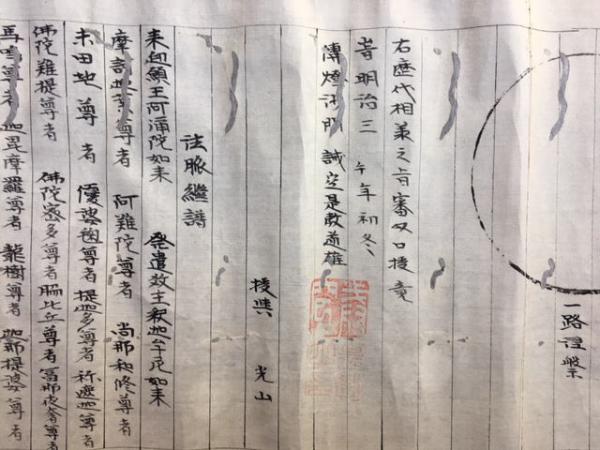 一路涅槃
右歴代相承之旨審以口授竟
時明治三 午年初冬
傳燈沙門 誠空是
授與 光山
法脈継譜
来迎願王阿彌陀如来 發遣教主釈迦牟尼如来
摩訶迦葉尊者 阿難陀尊者 尚那和修尊者
末田地尊者 優婆毱尊者 提迦多尊者 弥遮迦尊者
佛陀難提尊者 佛陀蜜多尊者 脇比丘尊者 冨那夜奢尊者
馬鳴尊者 迦毘摩羅尊者 龍樹尊者 迦那提婆尊者